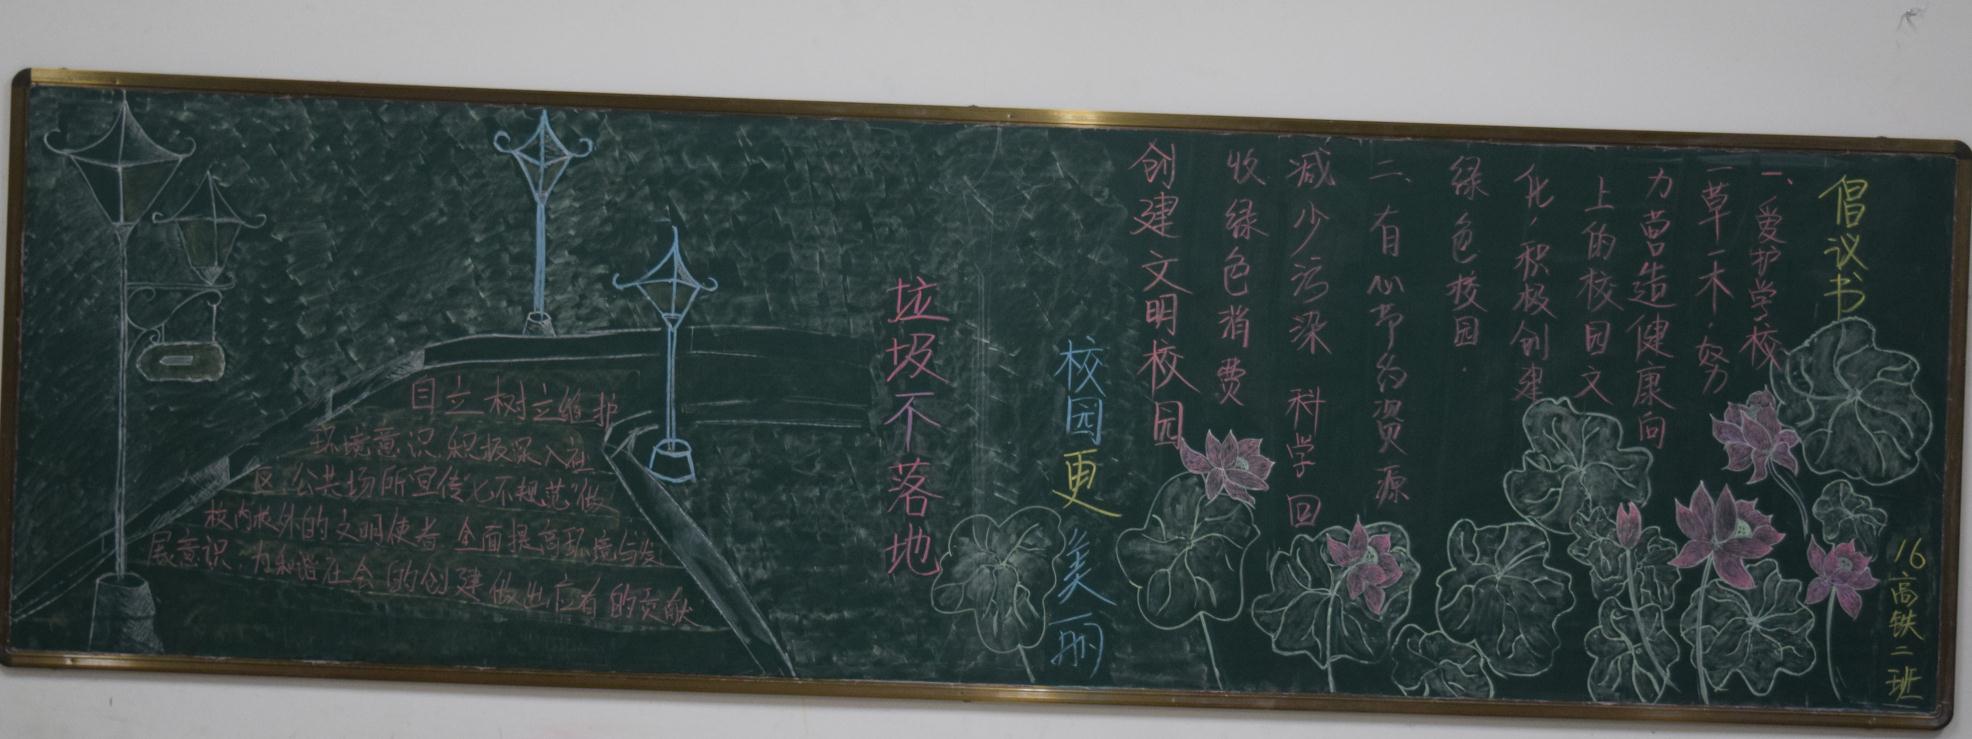 倡议书
一、爱护学校
一草一木，努
力营造健康向
上的校园文
化，积极创建
绿色校园．
二、有心节约资源
减少污染 科学回
收绿色消费
创建文明校园
校园更美丽
垃圾不落地
目立树立维护
环境意识，积极深入社
区、公共场所宣传七不规范做
校内校外的文明使者 全面提高环境与发
展意识，为和谐社会的创建做出应有的贡献
16高铁二班